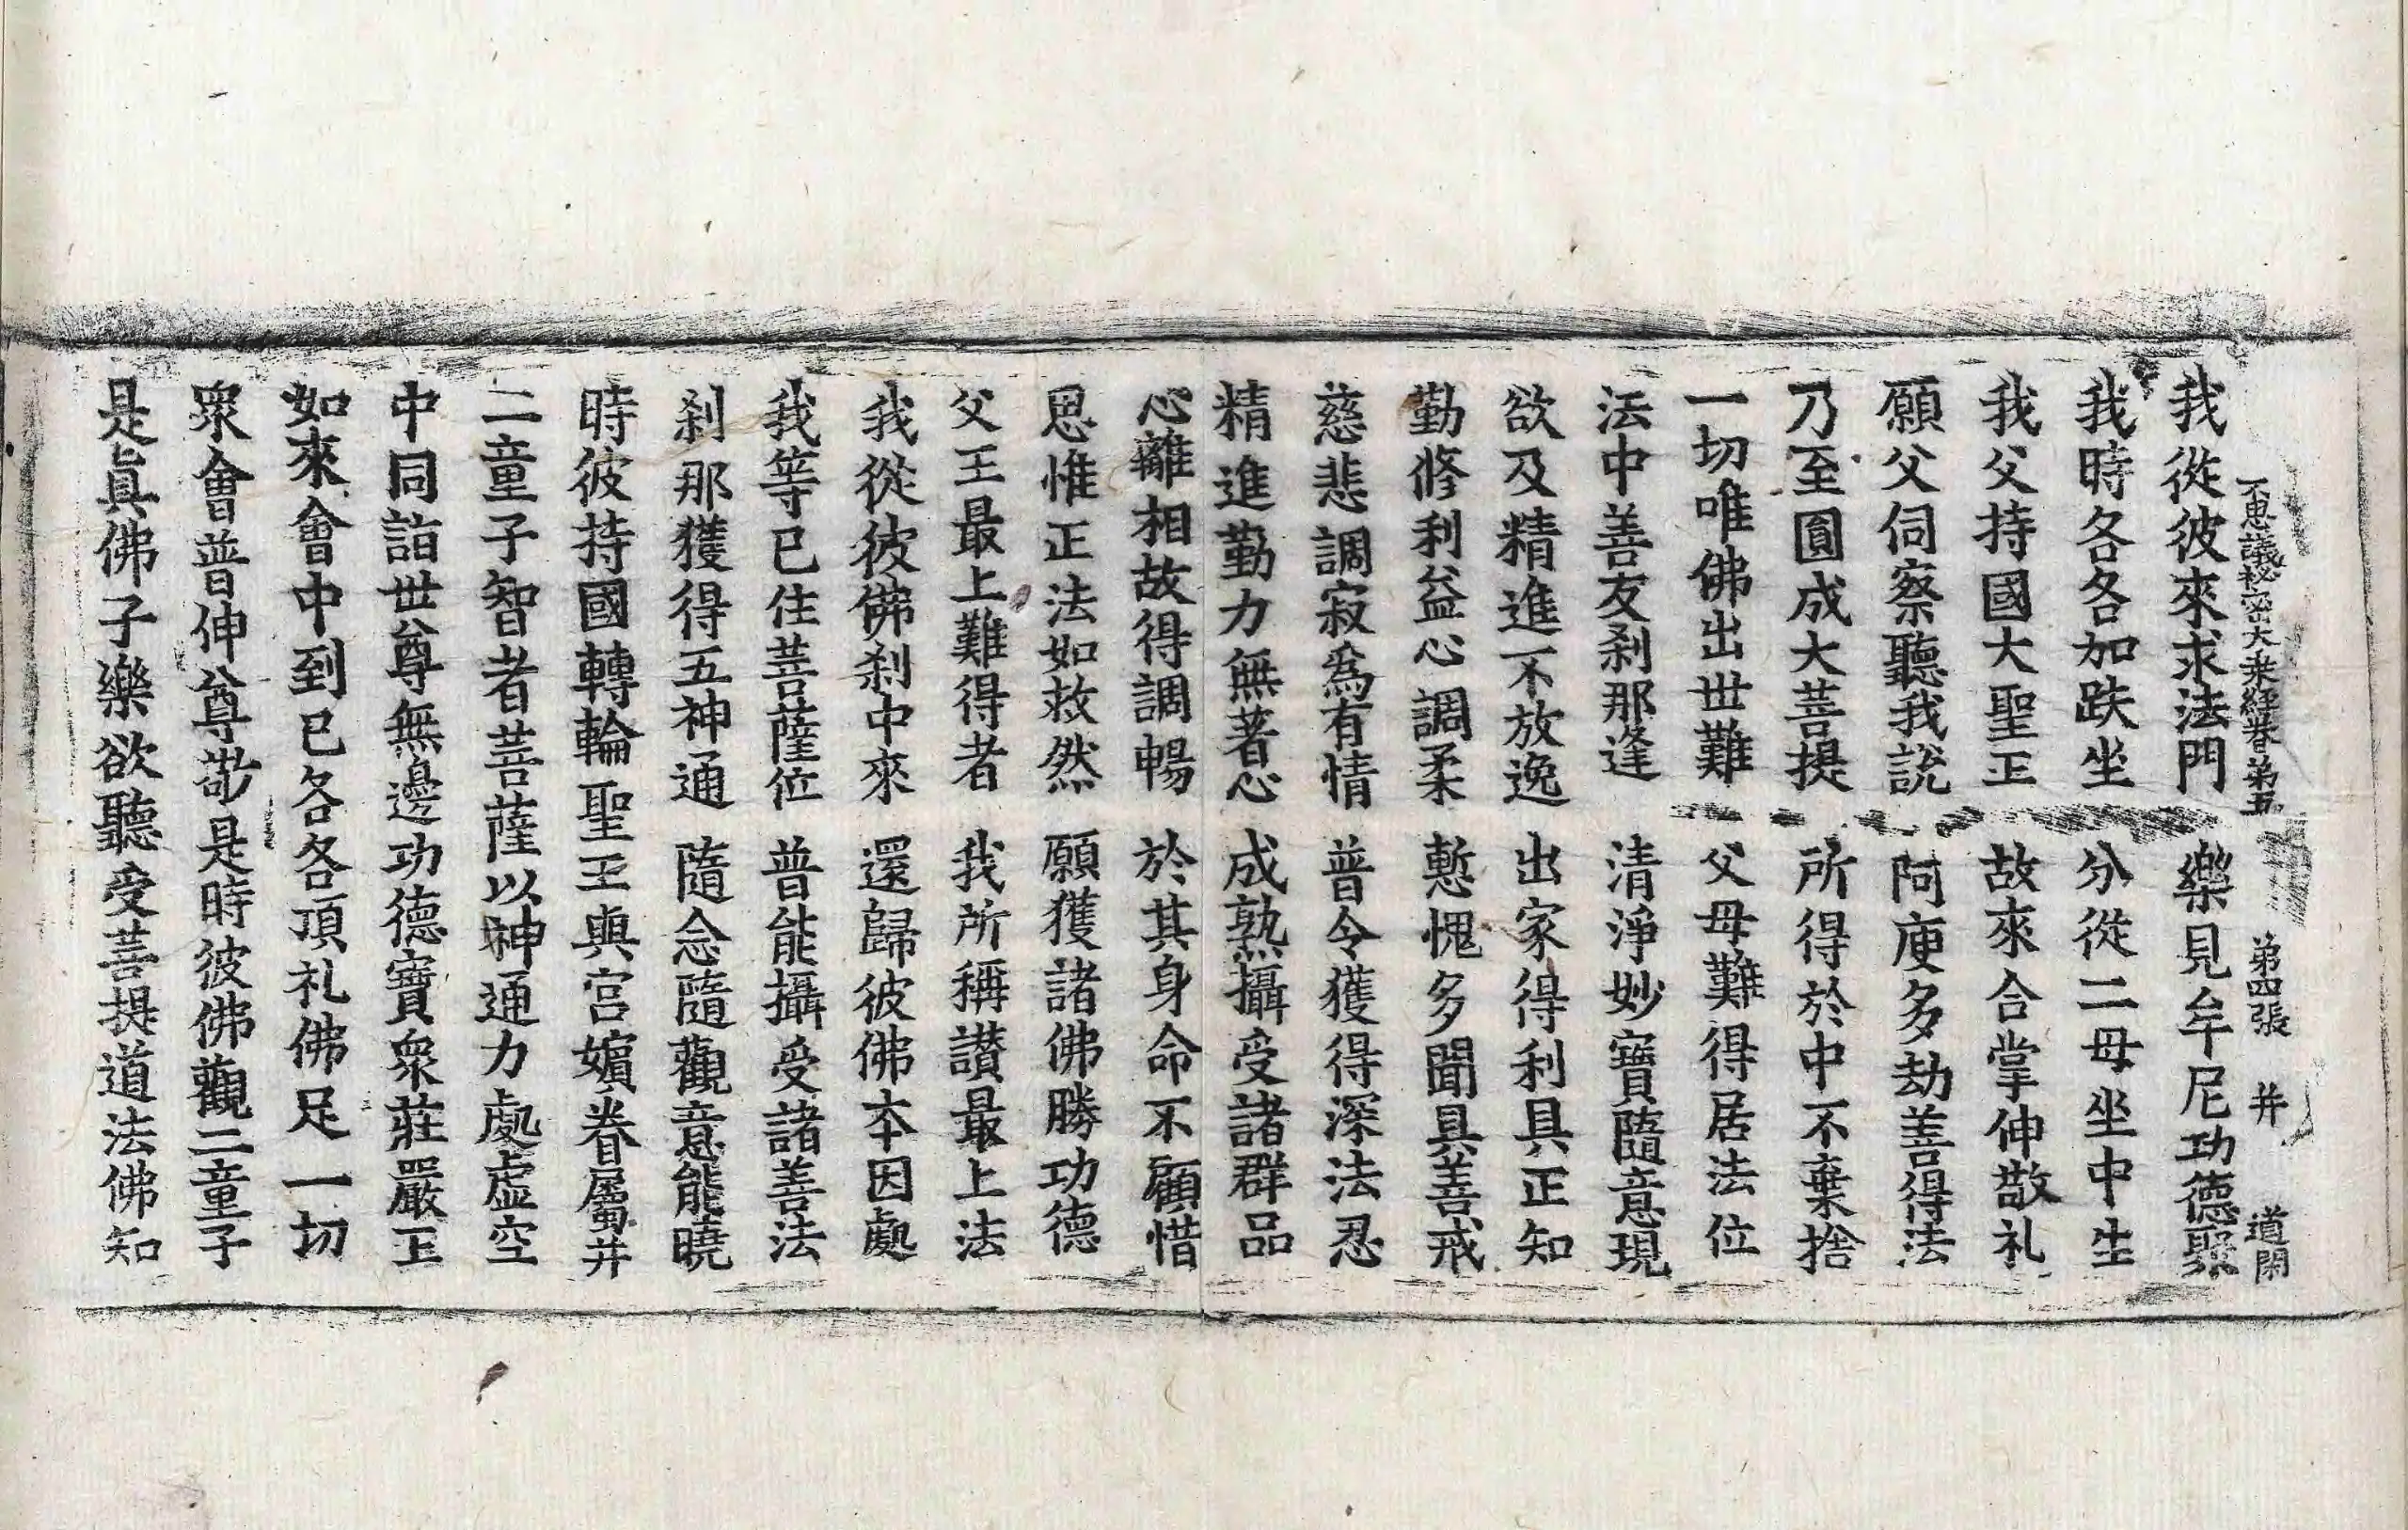 不思議秘密大乗經卷第五 第四張 并 道閑
我從彼來求法門 樂見牟尼功德聚
我時各各加趺坐 分從二母坐中生
我父持國大聖王 故來合掌伸敬礼
願父伺察聽我說 阿庾多劫善得法
乃至圓成大菩提 所得於中不棄捨
一切唯佛出世難 父母難得居法位
法中善友刹那逢 清淨妙寶隨意現
欲及精進不放逸 出家得利具正知
勤修利益心調柔 慙愧多聞具善戒
慈悲調寂為有情 普令獲得深法忍
精進勤力無著心 成熟攝受諸群品
心離相故得調暢 於其身命不顧惜
思惟正法如救然 願獲諸佛勝功德
父王最上難得者 我所稱讃最上法
我從彼佛刹中來 還歸彼佛本因處
我等已住菩薩位 普能攝受諸善法
刹那獲得五神通 隨念隨觀意能曉
時彼持國轉輪聖王與宮嬪眷屬并
二童子智者菩薩以神通力處虛空
中同詣世尊無邊功德寶衆莊嚴王
如來會中到已各各頂礼佛足一切
衆會普伸尊敬是時彼佛觀二童子
是眞佛子樂欲聽受菩提道法佛知